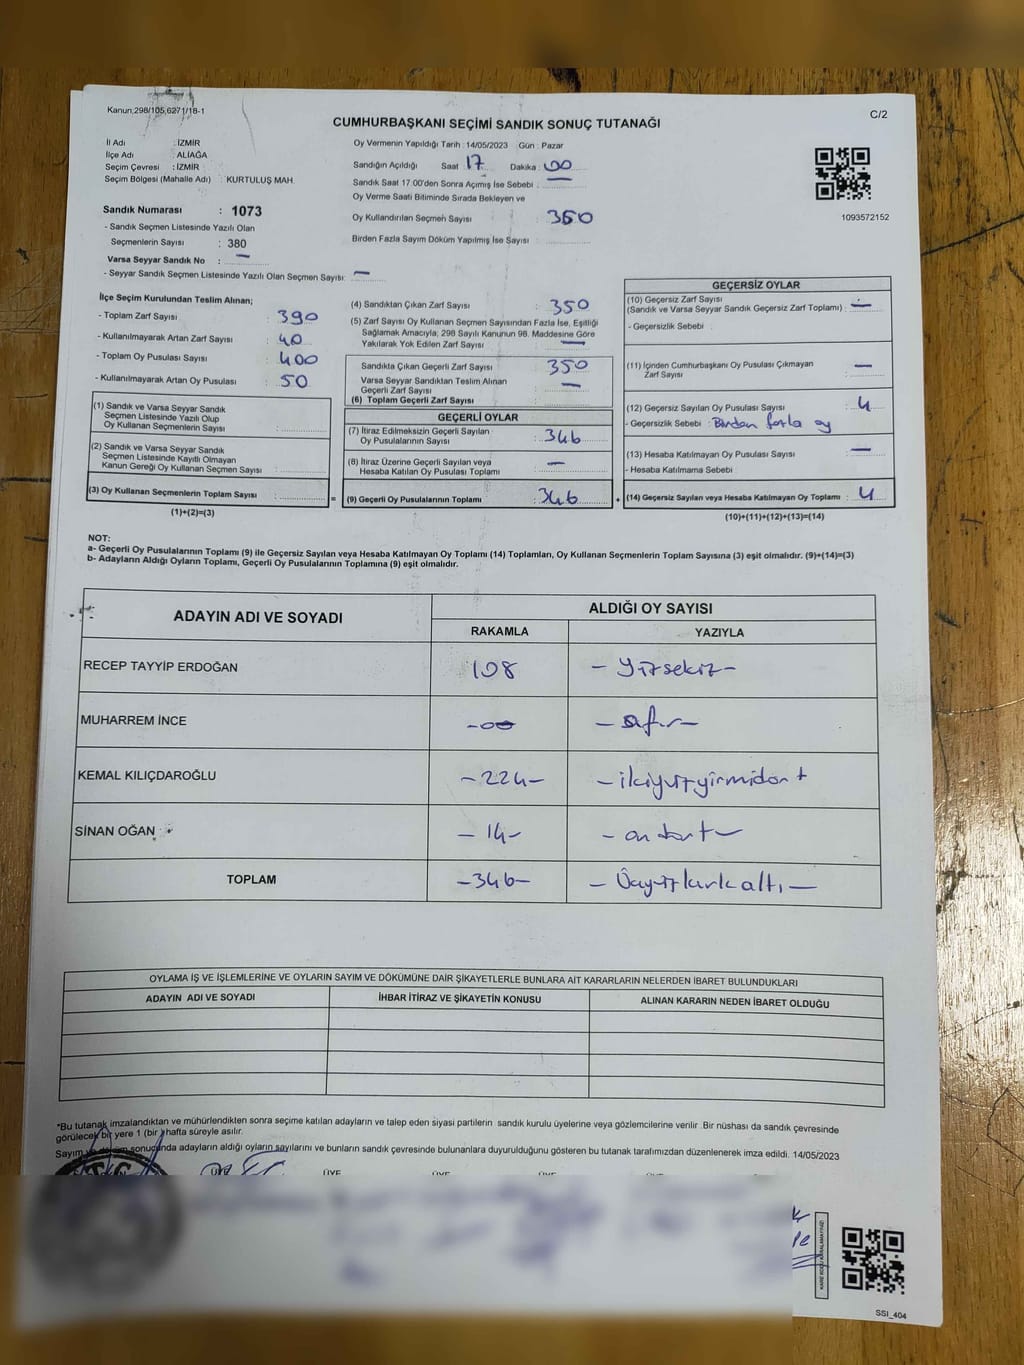 Kanun;298/105,6271/18-1
C/2
CUMHURBAŞKANI SEÇİMİ SANDIK SONUÇ TUTANAĞI
İl Adı : İZMİR
İlçe Adı : ALİAĞA
Seçim Çevresi : İZMİR
Seçim Bölgesi (Mahalle Adı) : KURTULUŞ MAH.
Sandık Numarası : 1073
- Sandık Seçmen Listesinde Yazılı Olan
Seçmenlerin Sayısı : 380
Varsa Seyyar Sandık No : —
- Seyyar Sandık Seçmen Listesinde Yazılı Olan Seçmen Sayısı: —
Oy Vermenin Yapıldığı Tarih : 14/05/2023 Gün : Pazar
Sandığın Açıldığı Saat : 17 Dakika : 00
Sandık Saat 17:00'den Sonra Açımış İse Sebebi : —
Oy Verme Saati Bitiminde Sırada Bekleyen ve
Oy Kullandırılan Seçmen Sayısı : 350
Birden Fazla Sayım Döküm Yapılmış İse Sayısı :
1093572152
İlçe Seçim Kurulundan Teslim Alınan;
- Toplam Zarf Sayısı : 390
- Kullanılmayarak Artan Zarf Sayısı : 40
- Toplam Oy Pusulası Sayısı : 400
- Kullanılmayarak Artan Oy Pusulası : 50
(1) Sandık ve Varsa Seyyar Sandık
Seçmen Listesinde Yazılı Olup
Oy Kullanan Seçmenlerin Sayısı :
(2) Sandık ve Varsa Seyyar Sandık
Seçmen Listesinde Kayıtlı Olmayan
Kanun Gereği Oy Kullanan Seçmen Sayısı :
(3) Oy Kullanan Seçmenlerin Toplam Sayısı : =
(1)+(2)=(3)
(4) Sandıktan Çıkan Zarf Sayısı : 350
(5) Zarf Sayısı Oy Kullanan Seçmen Sayısından Fazla İse, Eşitliği
Sağlamak Amacıyla; 298 Sayılı Kanunun 98. Maddesine Göre
Yakılarak Yok Edilen Zarf Sayısı : —
Sandıkta Çıkan Geçerli Zarf Sayısı : 350
Varsa Seyyar Sandıktan Teslim Alınan
Geçerli Zarf Sayısı : —
(6) Toplam Geçerli Zarf Sayısı :
GEÇERLİ OYLAR
(7) İtiraz Edilmeksizin Geçerli Sayılan
Oy Pusulalarının Sayısı : 346
(8) İtiraz Üzerine Geçerli Sayılan veya
Hesaba Katılan Oy Pusulası Toplamı : —
(9) Geçerli Oy Pusulalarının Toplamı : 346 +
GEÇERSİZ OYLAR
(10) Geçersiz Zarf Sayısı
(Sandık ve Varsa Seyyar Sandık Geçersiz Zarf Toplamı) : —
- Geçersizlik Sebebi :
(11) İçinden Cumhurbaşkanı Oy Pusulası Çıkmayan
Zarf Sayısı : —
(12) Geçersiz Sayılan Oy Pusulası Sayısı : 4
- Geçersizlik Sebebi : Birden fazla oy
(13) Hesaba Katılmayan Oy Pusulası Sayısı : —
- Hesaba Katılmama Sebebi
(14) Geçersiz Sayılan veya Hesaba Katılmayan Oy Toplamı : 4
(10)+(11)+(12)+(13)=(14)
NOT:
a- Geçerli Oy Pusulalarının Toplamı (9) ile Geçersiz Sayılan veya Hesaba Katılmayan Oy Toplamı (14) Toplamları, Oy Kullanan Seçmenlerin Toplam Sayısına (3) eşit olmalıdır. (9)+(14)=(3)
b- Adayların Aldığı Oyların Toplamı, Geçerli Oy Pusulalarının Toplamına (9) eşit olmalıdır.
ADAYIN ADI VE SOYADI ALDIĞI OY SAYISI
RAKAMLA YAZIYLA
RECEP TAYYİP ERDOĞAN 108 – Yüzsekiz –
MUHARREM İNCE – 00 – sıfır –
KEMAL KILIÇDAROĞLU – 224 – – ikiyüzyirmidört
SİNAN OĞAN – 14 – – on dört –
TOPLAM – 346 – – Üçyüzkırkaltı –
OYLAMA İŞ VE İŞLEMLERİNE VE OYLARIN SAYIM VE DÖKÜMÜNE DAİR ŞİKAYETLERLE BUNLARA AİT KARARLARIN NELERDEN İBARET BULUNDUKLARI
ADAYIN ADI VE SOYADI İHBAR İTİRAZ VE ŞİKAYETİN KONUSU ALINAN KARARIN NEDEN İBARET OLDUĞU
*Bu tutanak imzalandıktan ve mühürlendikten sonra seçime katılan adayların ve talep eden siyasi partilerin sandık kurulu üyelerine veya gözlemcilerine verilir. Bir nüshası da sandık çevresinde
görülecek bir yere 1 (bir ) hafta süreyle asılır.
Sayım ve sonucunda adayların aldığı oyların sayılarını ve bunların sandık çevresinde bulunanlara duyurulduğunu gösteren bu tutanak tarafımızdan düzenlenerek imza edildi. 14/05/2023
ÜYE ÜYE ÜYE ÜYE ÜYE
SSİ_404